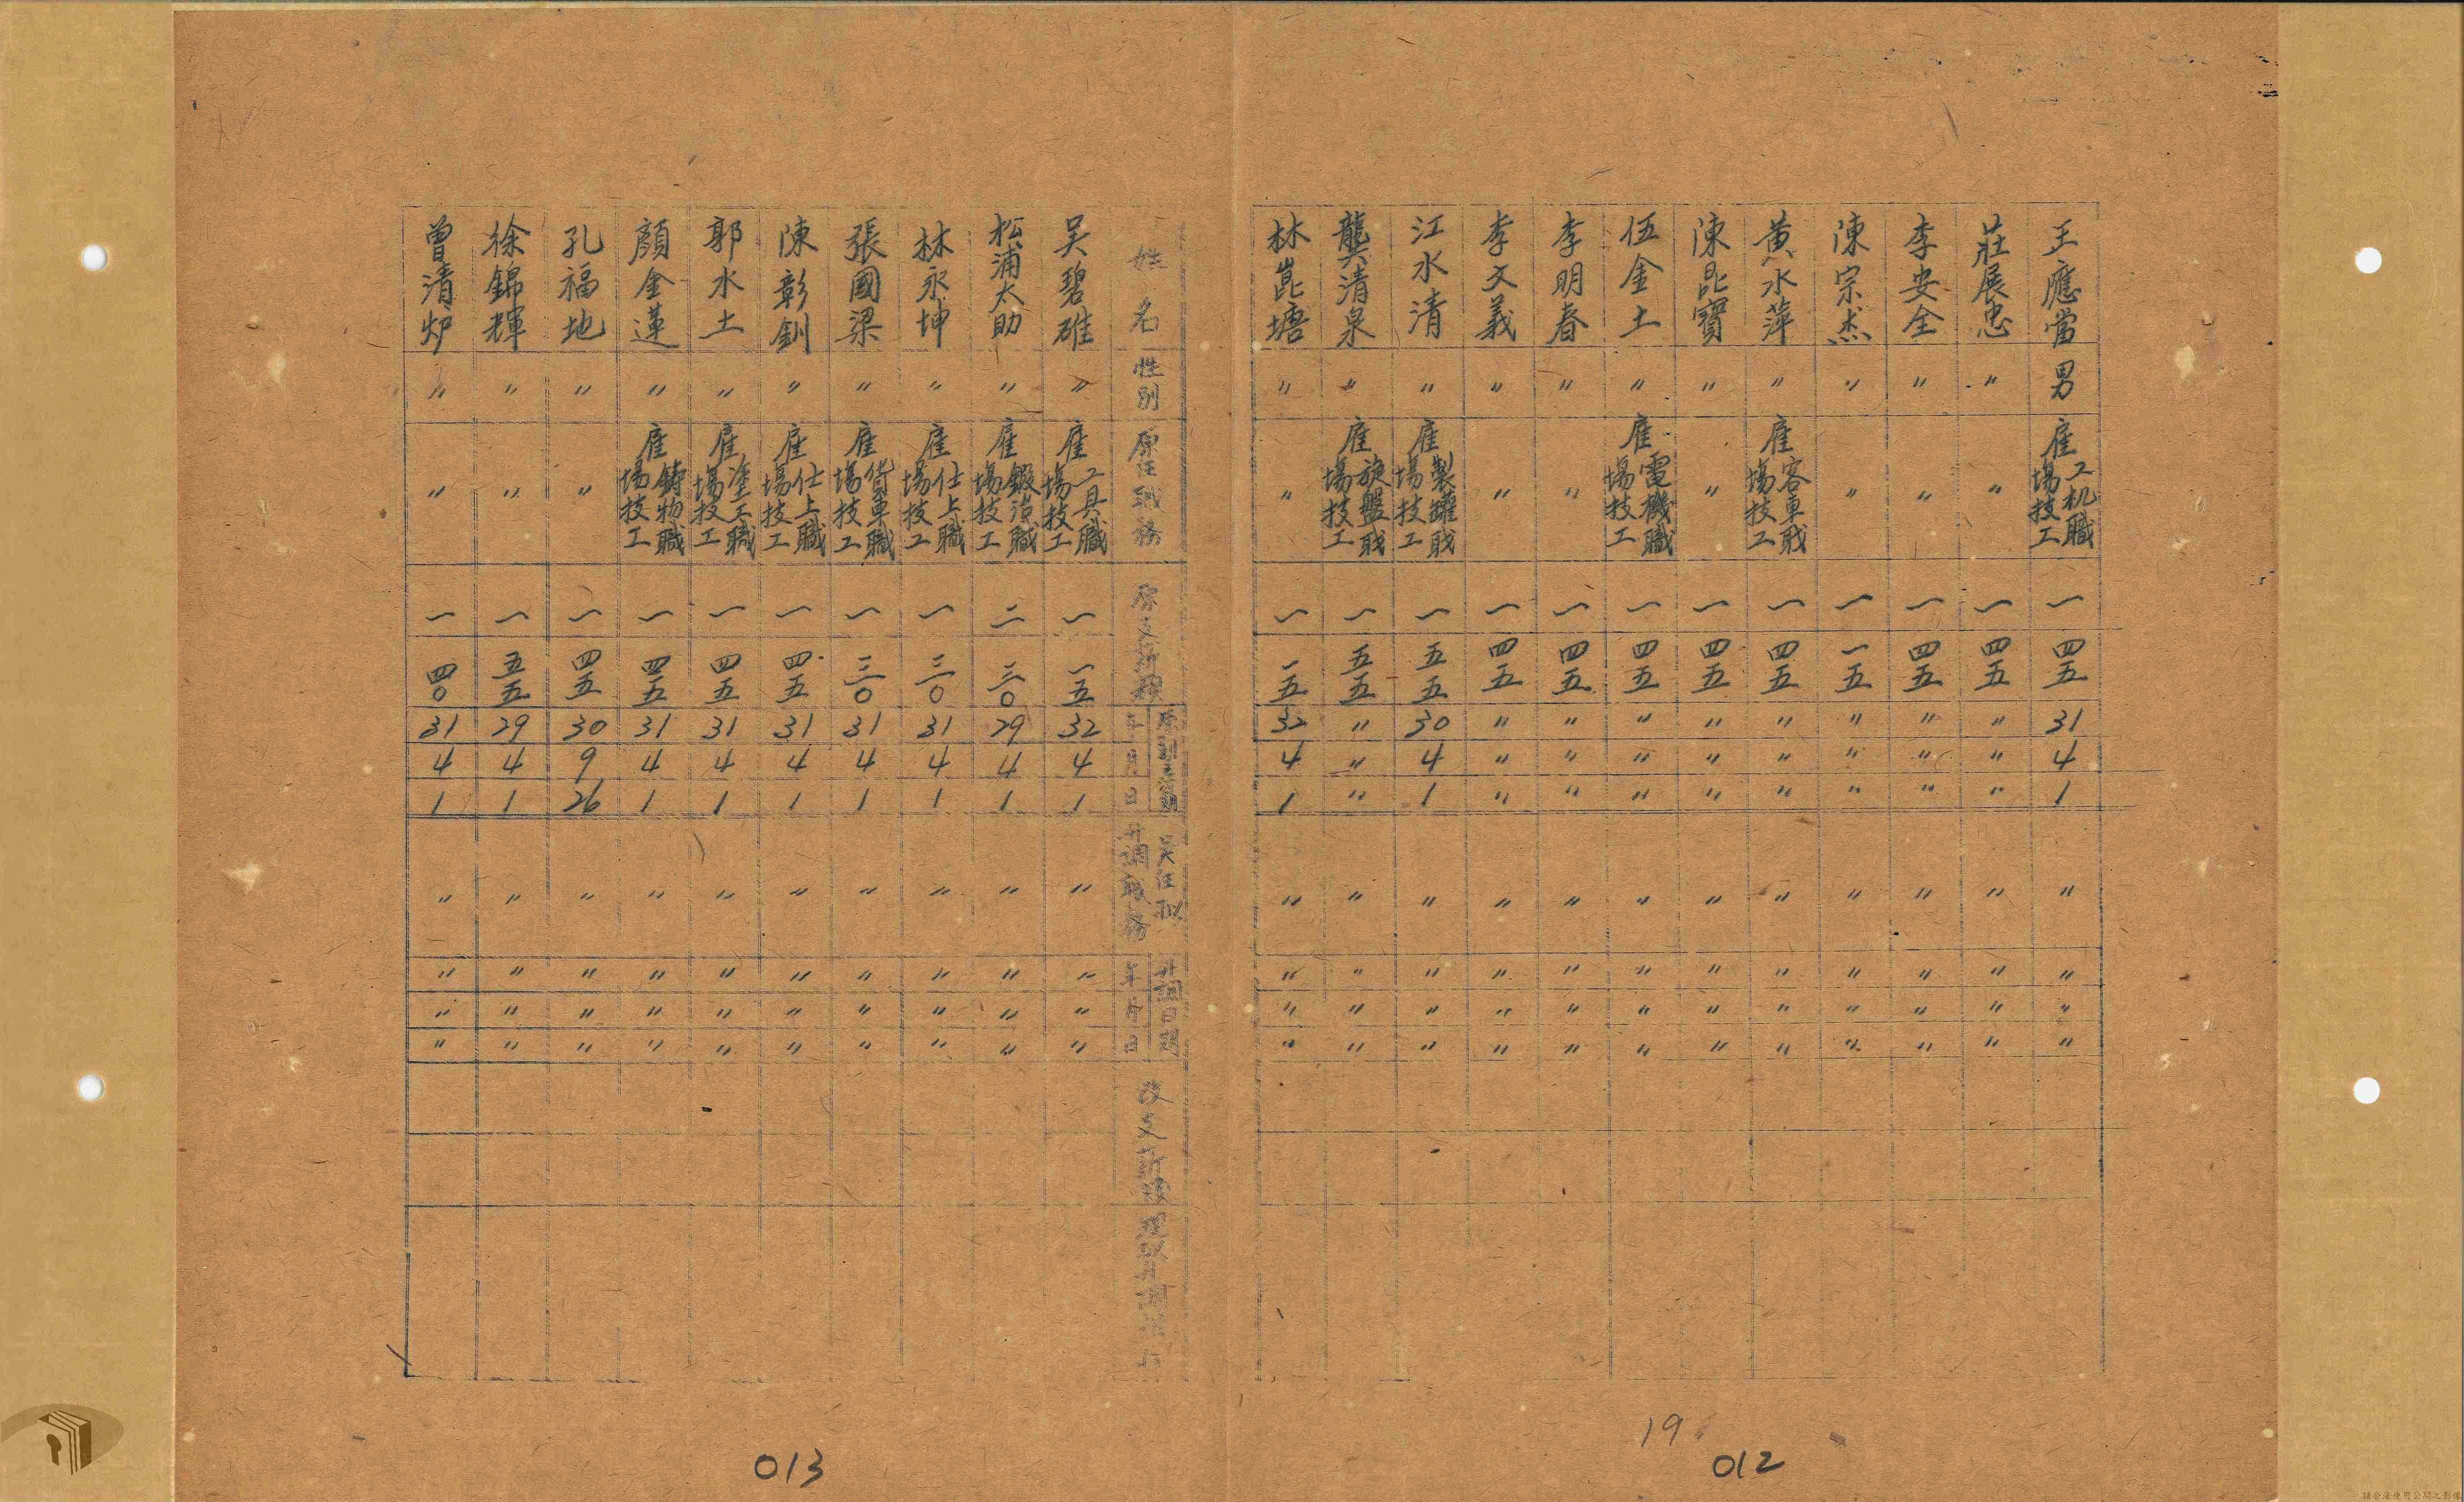 王應當 男 雇 工机職場技工 一 四五 31 4 1 〃 〃 〃 〃
莊展忠 〃 〃 一 四五 〃 〃 〃 〃 〃 〃 〃
李安全 〃 〃 一 四五 〃 〃 〃 〃 〃 〃 〃
陳宗杰 〃 〃 一 一五 〃 〃 〃 〃 〃 〃 〃
黃水萍 〃 雇 客車戝場技工 一 四五 〃 〃 〃 〃 〃 〃 〃
陳昆寶 〃 〃 一 四五 〃 〃 〃 〃 〃 〃 〃
伍金土 〃 雇 電機職場技工 一 四五 〃 〃 〃 〃 〃 〃 〃
李明春 〃 〃 一 四五 〃 〃 〃 〃 〃 〃 〃
李文義 〃 〃 一 四五 〃 〃 〃 〃 〃 〃 〃
江水清 〃 雇 製罐戝場技工 一 五五 30 4 1 〃 〃 〃 〃
龔清泉 〃 雇 旋盤戝場技工 一 五五 〃 〃 〃 〃 〃 〃 〃
林崑塘 〃 〃 一 一五 32 4 1 〃 〃 〃 〃
19
012
姓名 性別 原任職務 原支薪額 年月日 年月日
吴碧碓 〃 雇 工具職場技工 一 一五 32 4 1 〃 〃 〃 〃
松浦太助 〃 雇 鍛治職場技工 二 三〇 29 4 1 〃 〃 〃 〃
林永坤 〃 雇 仕上職場技工 一 三〇 31 4 1 〃 〃 〃 〃
張國梁 〃 雇 貨車職場技工 一 三〇 31 4 1 〃 〃 〃 〃
陳彰釧 〃 雇 仕上職場技工 一 四五 31 4 1 〃 〃 〃 〃
郭水土 〃 雇 塗工職場技工 一 四五 31 4 1 〃 〃 〃 〃
顏金蓮 〃 雇 鋳物職場技工 一 四五 31 4 1 〃 〃 〃 〃
孔福地 〃 〃 一 四五 30 9 26 〃 〃 〃 〃
徐錦輝 〃 〃 一 五五 29 4 1 〃 〃 〃 〃
曾清炉 〃 〃 一 四〇 31 4 1 〃 〃 〃 〃
013